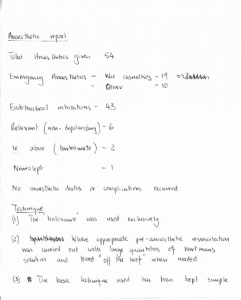 Anaesthetic report
Total Anaesthetics given 54
Emergency Anaesthetics - War casualties - 19
Other - 10
Endotracheal intubations - 43
Relaxant (non-depolarising) - 6
IV alone (barbiturate) - 2
Neurolept - 1
No anaesthetic deaths or complications occurred
Technique
(1) The "was used exclusively
(2) Where appropriate pre-anaesthetic resuscitation
was carried out with large quantities of hartmans
solution and blood "off the hoof" when needed.
(3) The basic technique used has been kept simple